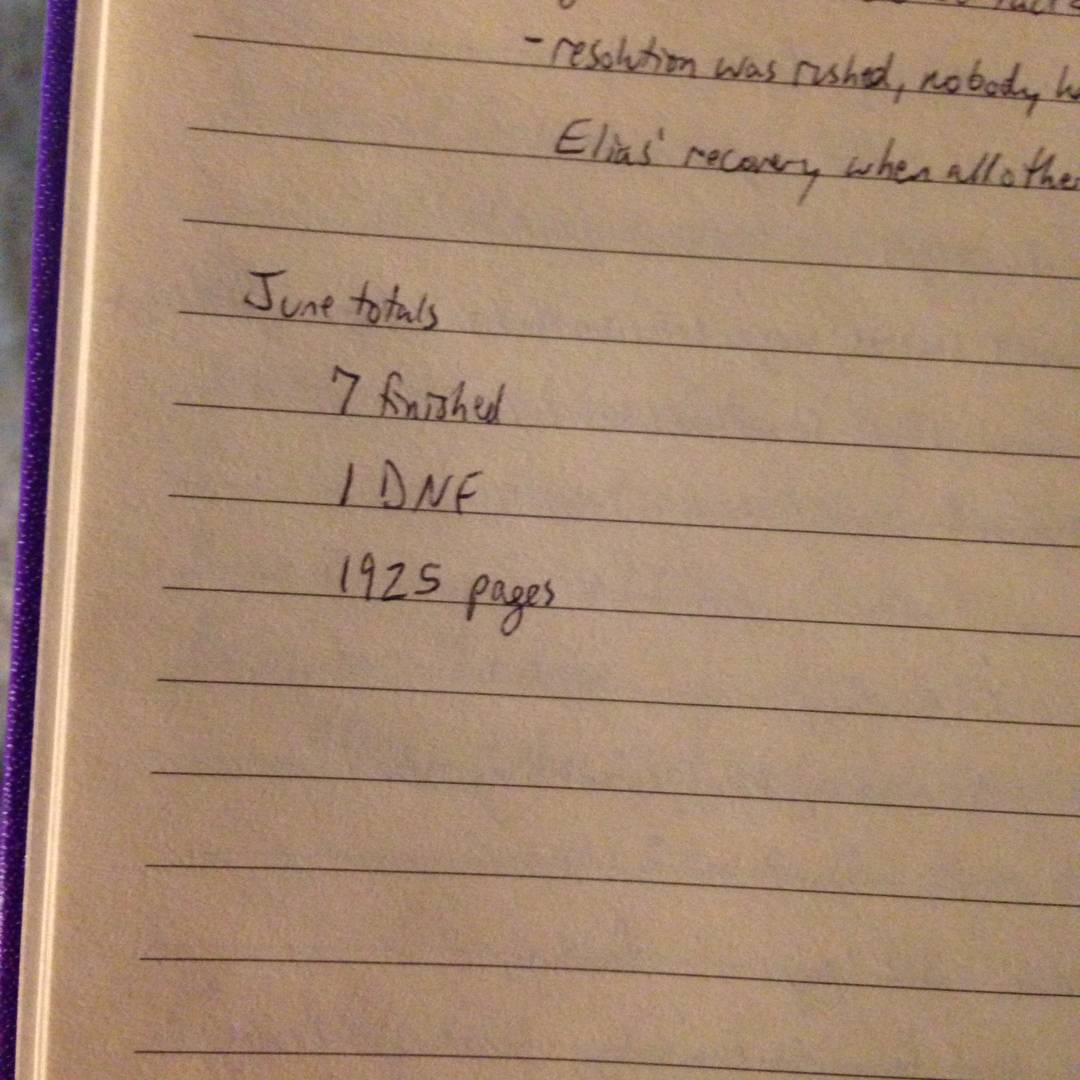 - resolution was rushed, nobody
Elias' recovery when all other
June totals
7 finished
1 DNF
1925 pages